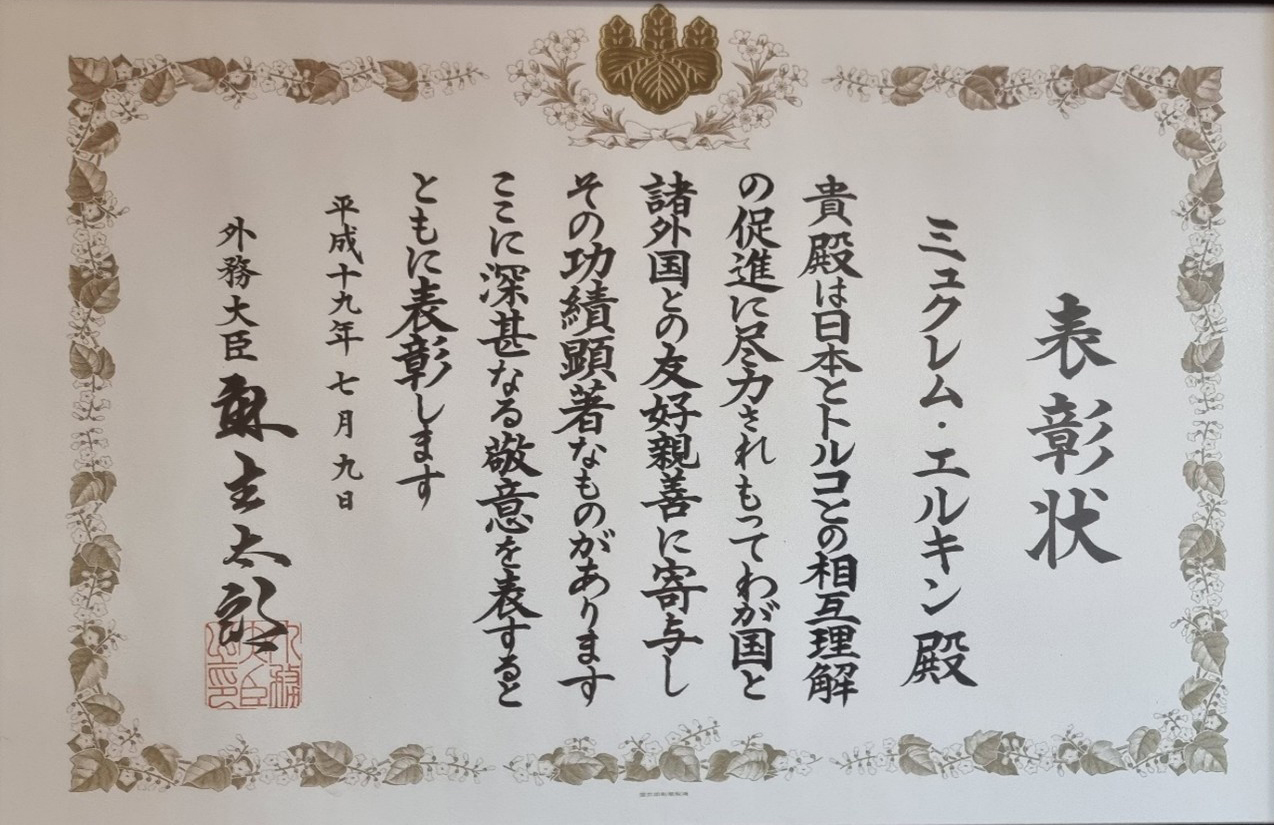 表彰状
ミュクレム・エルキン 殿
貴殿は日本とトルコとの相互理解
の促進に尽力されもってわが国と
諸外国との友好親善に寄与し
その功績顕著なものがあります
ここに深甚なる敬意を表すると
ともに表彰します
平成十九年 七月 九日
外務大臣 麻生太郎
外務大臣之印